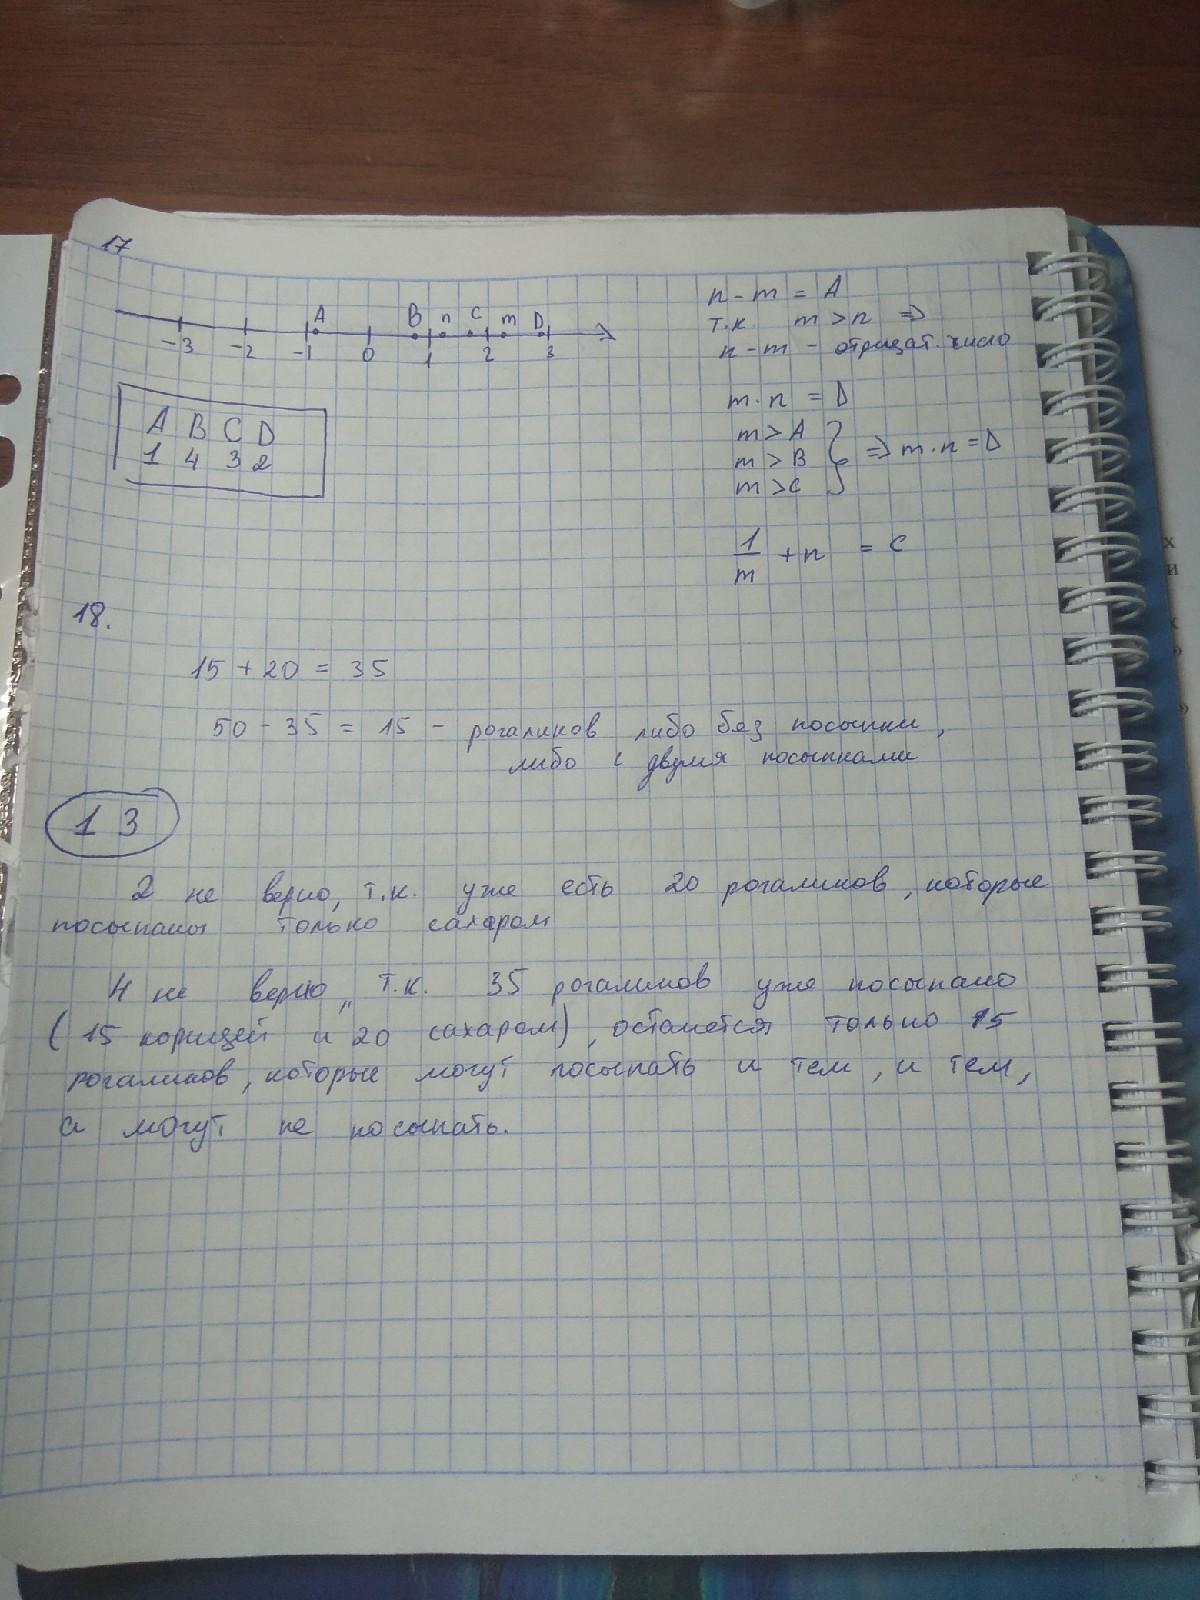 17
A B n C m D
-3 -2 -1 0 1 2 3
A B C D
1 4 3 2
n - m = A
т.к. m > n ⇒
n - m - отрицат. число
m · n = D
m > A
m > B
m > C
⇒ m · n = D
1/m + n = C
18.
15 + 20 = 35
50 - 35 = 15 - рогаликов либо без посыпки,
либо с двумя посыпками
1 3
2 не верно, т.к. уже есть 20 рогаликов, которые
посыпаны только сахаром
4 не верно, т.к. 35 рогаликов уже посыпано
(15 корицей и 20 сахаром), останется только 15
рогаликов, которые могут посыпать и тем, и тем,
а могут не посыпать.